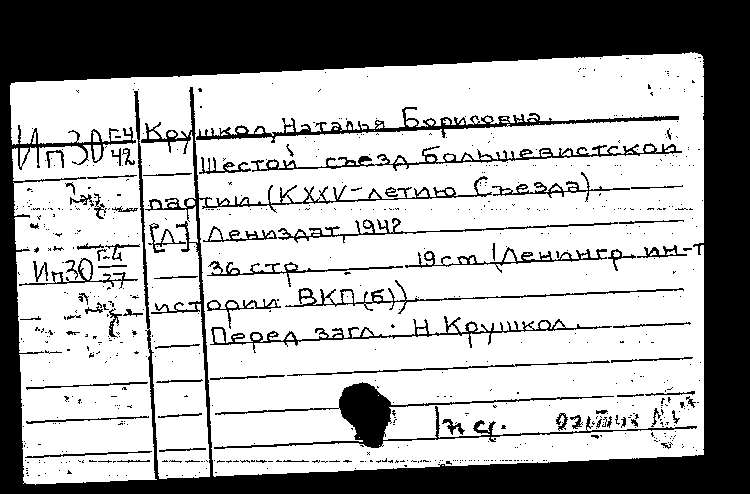 Крушкол, Наталья Борисовна.
Ип30 Г-4/42
Шестой съезд большевистской
2 экз.
партии. (К XXV-летию Съезда).
[Л.] Лениздат, 1942
Ип30 Г-4/37
36 стр. 19 cm (Ленингр. ин-т
2 экз.
истории ВКП(б)).
Перед загл.: Н. Крушкол.